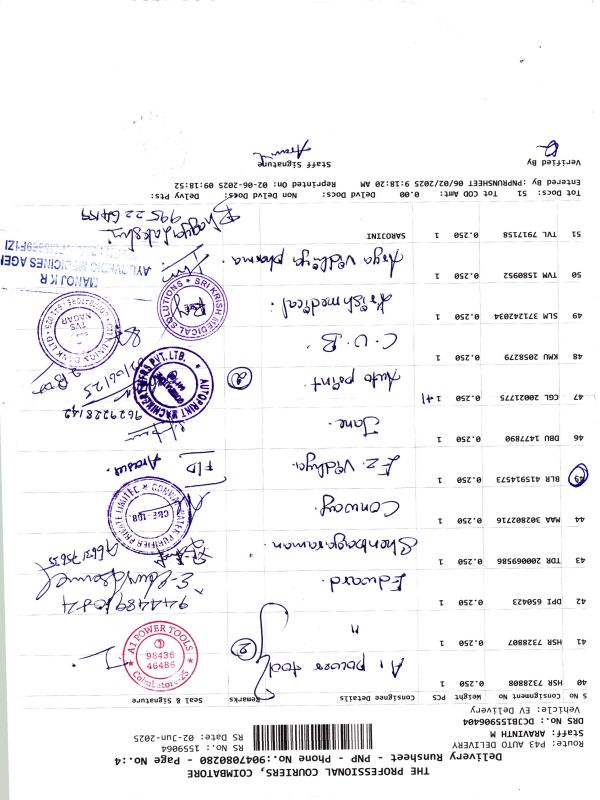 THE PROFESSIONAL COURIERS, COIMBATORE
Delivery Runsheet - PNP - Phone No.:9047080280 - Page No.:4
Route: P43 AUTO DELIVERY
Staff: ARAVINTH M
DRS No.: DCJB155906404
Vehicle: EV Delivery
RS No.: 1559064
RS Date: 02-Jun-2025
S No Consignment No Weight PCS Consignee Details Remarks Seal & Signature
40 HSR 7328808 0.250 1 A1 power tools
A1 POWER TOOLS
98436
46486
Coimbatore-25
41 HSR 7328807 0.250 1 " 2
42 DPI 650423 0.250 1 Edward.
43 TDR 200069586 0.250 1 Shenbagaraman.
44 MAA 302802716 0.250 1 Conway.
CBE-108.
45 BLR 415914573 0.250 1 Ez Vidhya. FID Arasur
46 DBU 1477890 0.250 1 Jane.
9629228142
47 CGL 20021775 0.250 1+1 Auto print. 2
AUTOPRINT MACHINERY PVT. LTD.
48 KMU 2058279 0.250 1 C.U.B.
TVS NAGAR
49 SLM 371242034 0.250 1 Krish medical.
SRI KRISH MEDICAL SOLUTIONS
50 TVM 1580952 0.250 1 Arya Vidhya pharma.
MANOJ K R
51 TVL 7917158 0.250 1 SAROJINI
Tot Docs: 51 Tot COD Amt: 0.00 Delvd Docs: Non Delvd Docs: Delvy Pts:
Entered By :PNPRUNSHEET 06/02/2025 9:18:20 AM Reprinted On: 02-06-2025 09:18:52
Verified By Staff Signature